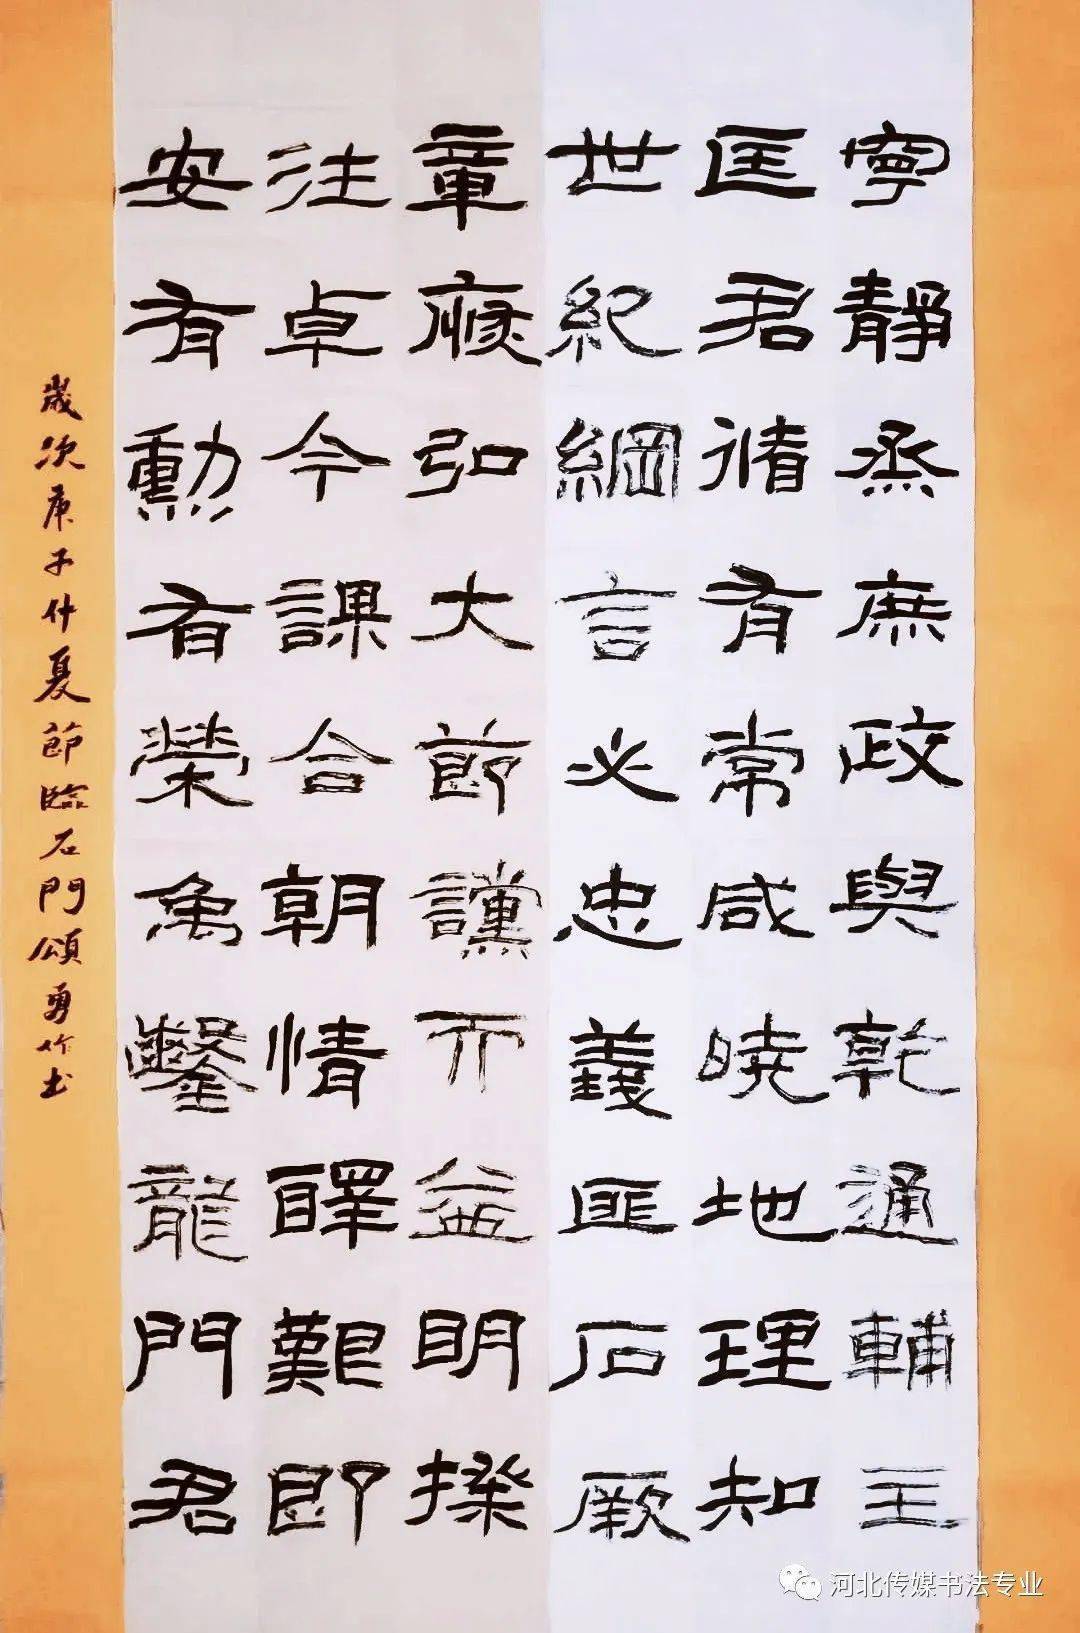 寧靜烝庶政與乾通輔主
匡君脩有常咸曉地理知
世紀綱言必忠義匪石厥
章癈弘大節讜而益明揆
往卓今謀合朝情醳艱即
安有勳有榮禹鑿龍門君
歲次庚子仲夏節臨石門頌勇作書
河北传媒书法专业